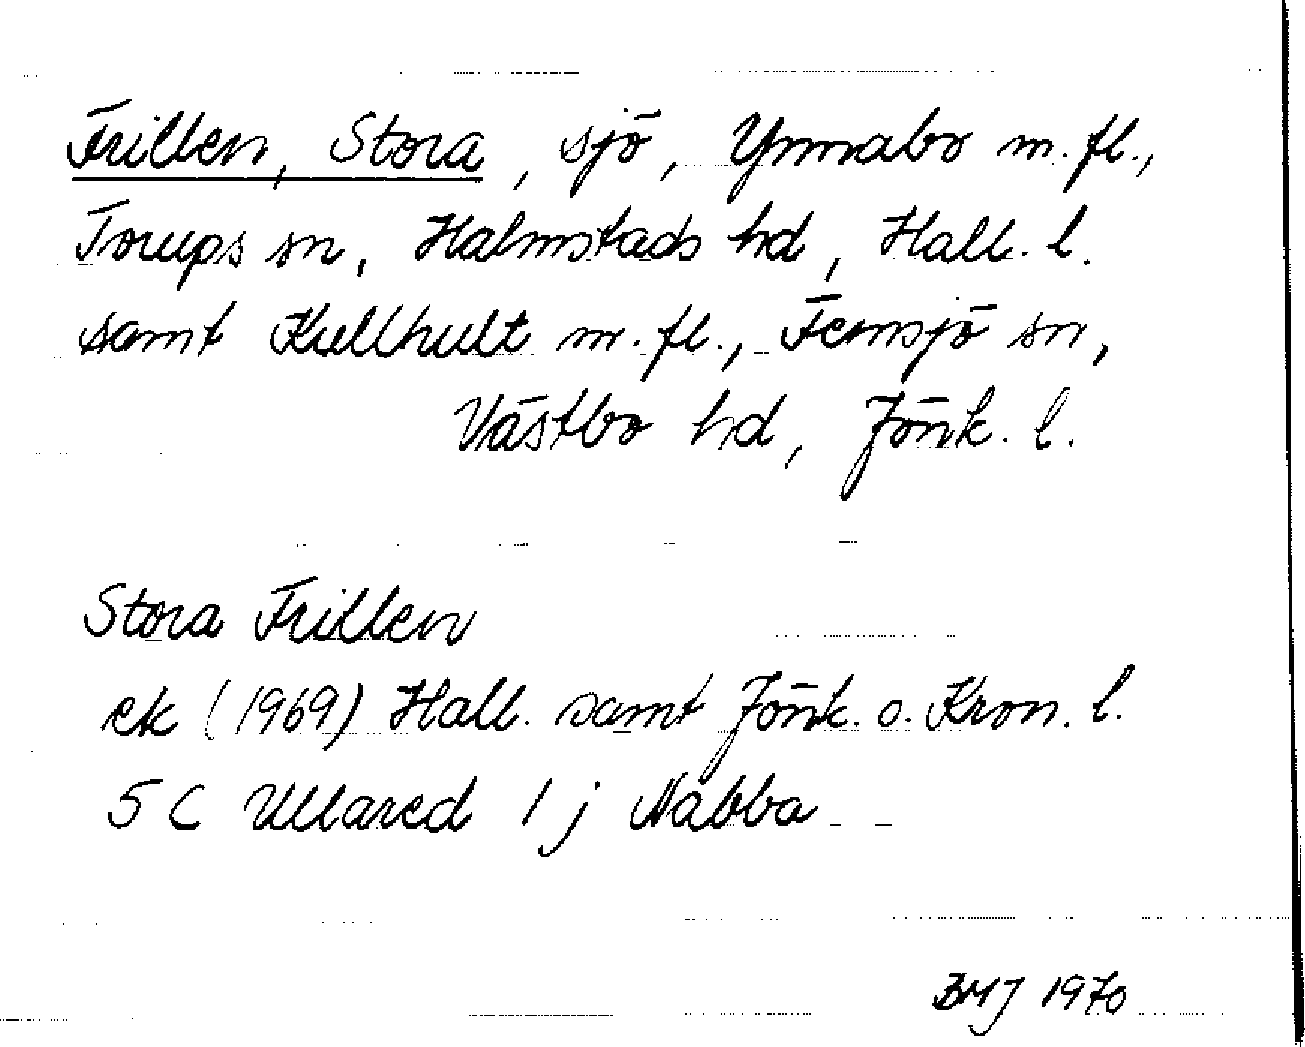 Frillen, Stora, sjö, Ynnabo m. fl.,
Torups sn, Halmstads hd, Hall. l.
samt Kullhult m. fl., Femsjö sn,
Västbo hd, Jönk. l.
Stora Frillen
ek (1969) Hall. samt Jönk. o. Kron. l.
5 C Ullared 1 j Nabba
BMJ 1970